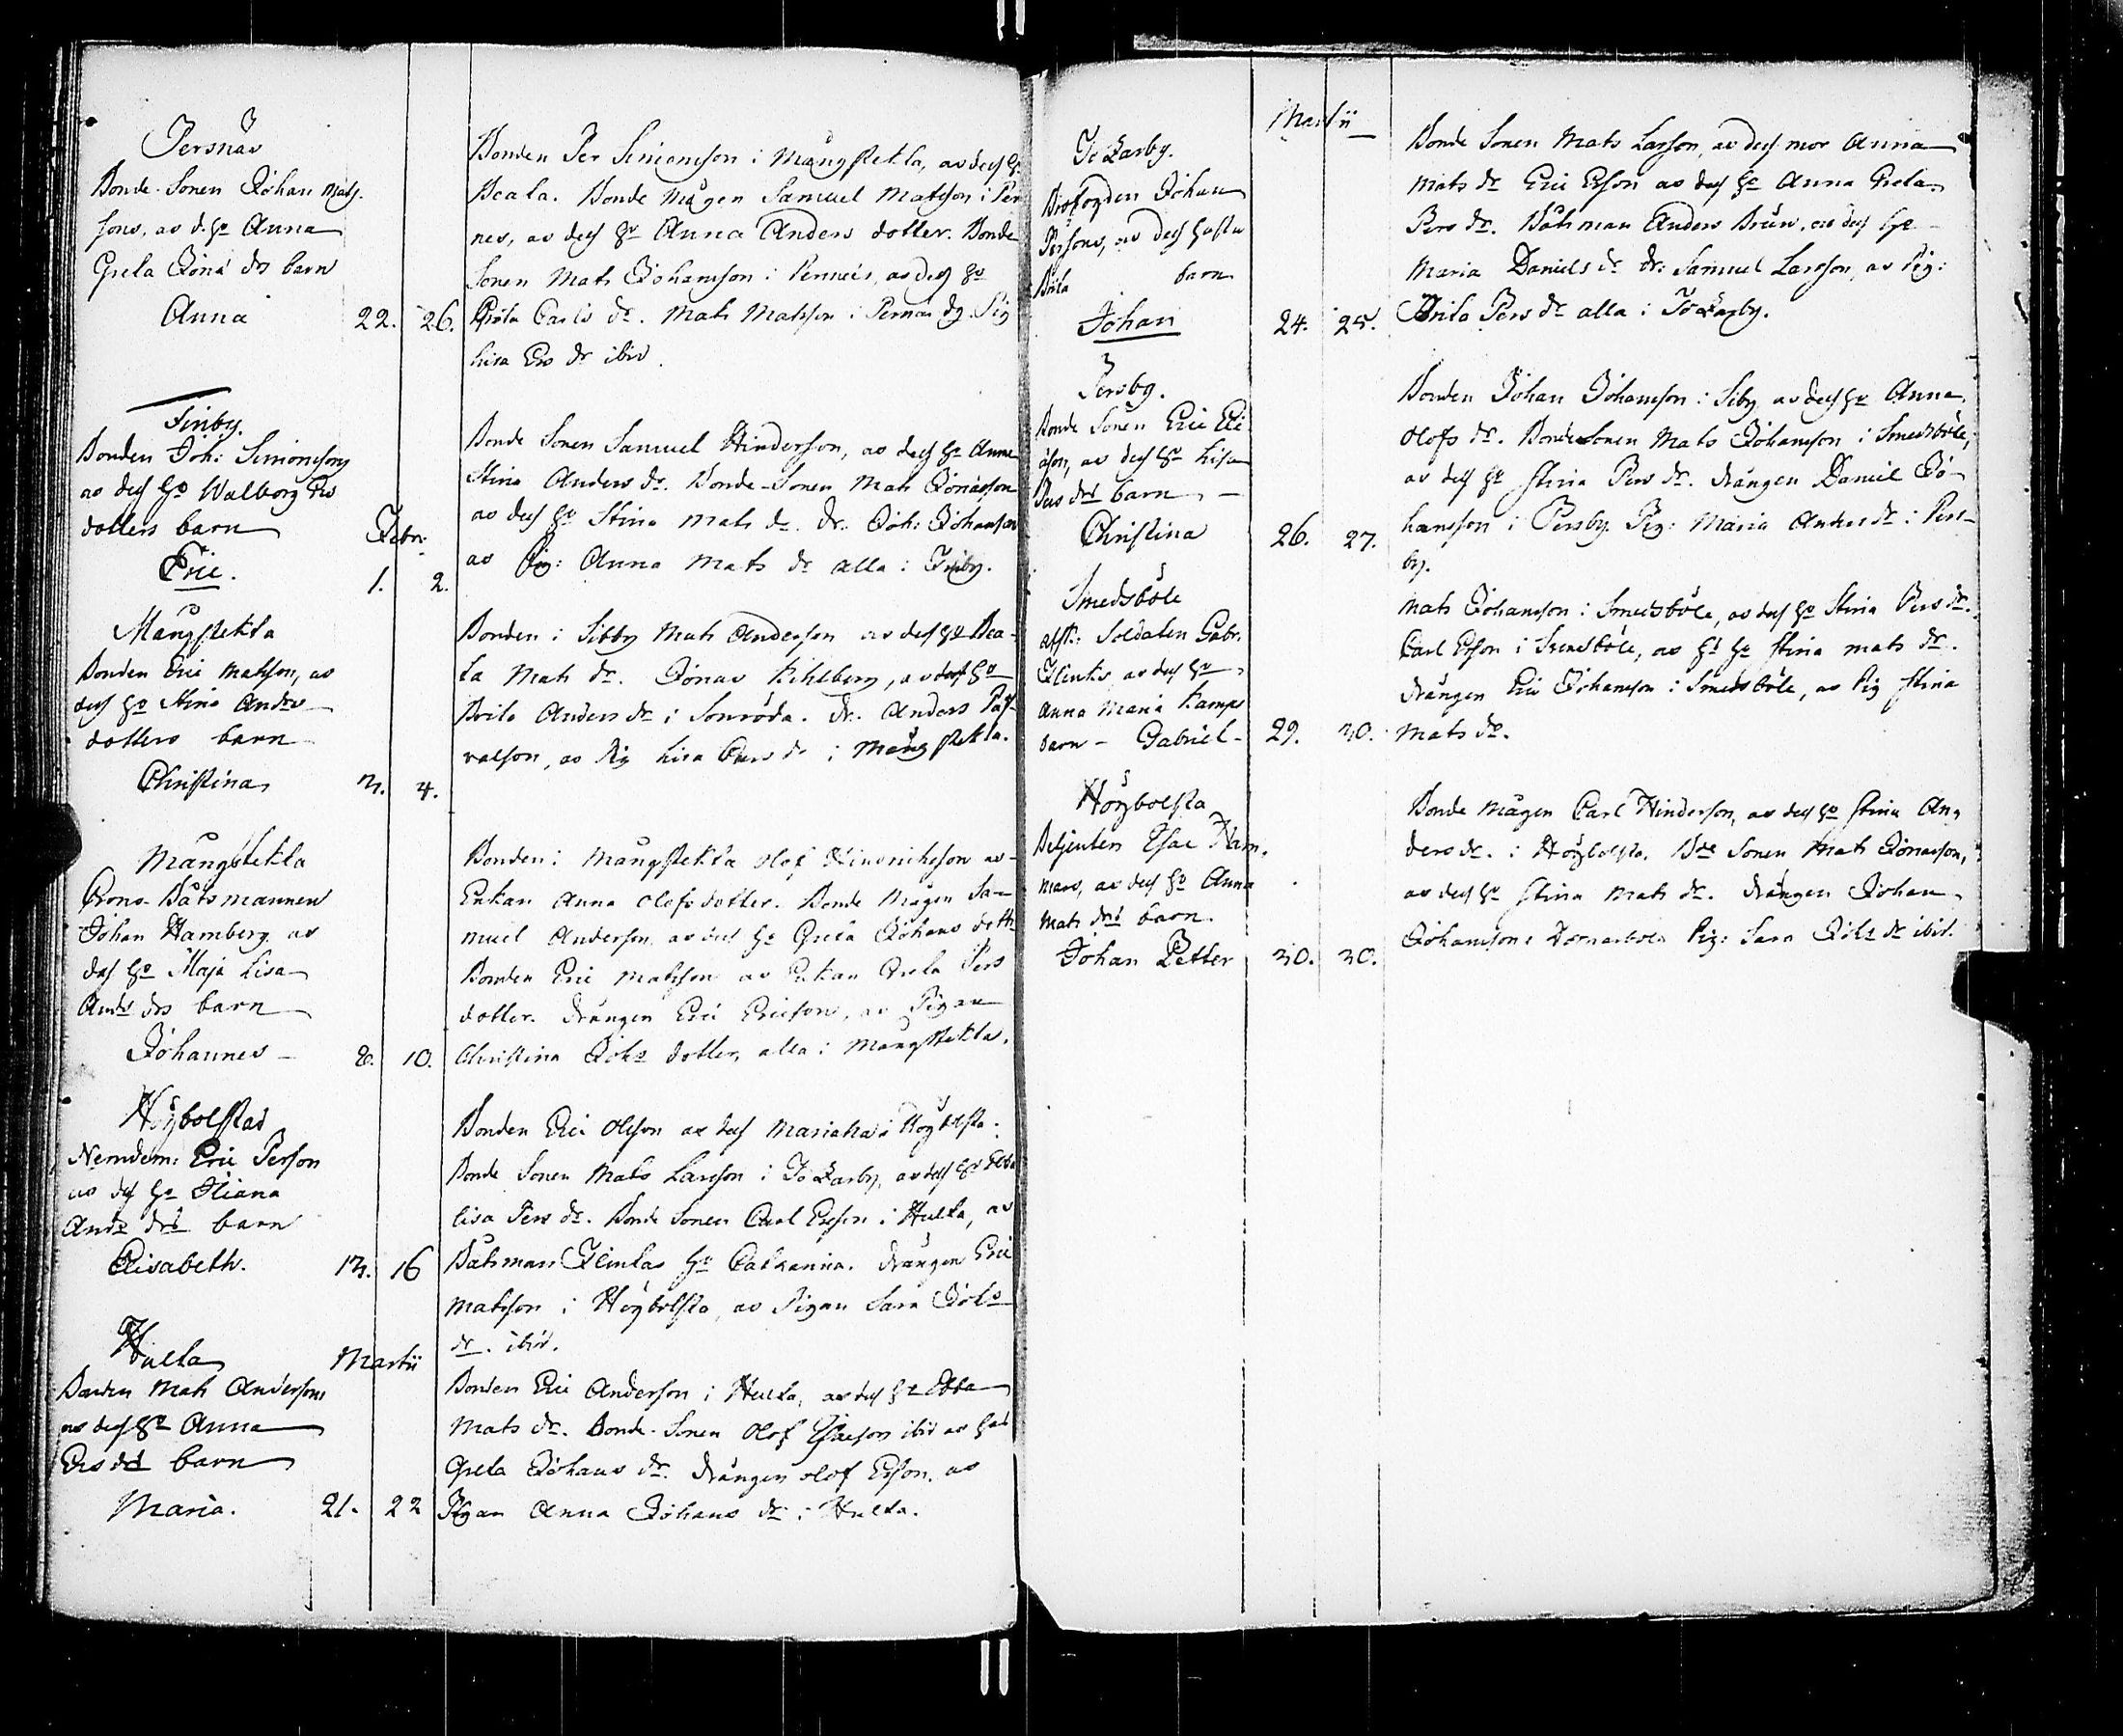 Persnäs
Bonde Sonen Johan Mats
sons, as d. h:o Anna
Greta Jona drs barn
Anna 22. 26.
Bonden Per Simonsson i Mångstekta, as dess h:o
Beata. Bonde Mågen Samuel Matsson i Per
nes, as dess h:o Anna Anders dotter. Bonde
Sonen Mats Johansson i Pernäs, as dess h:o
Greta Carls dr. Mats Matsson i Pernäs dg. Pig
Lisa Ers dr ibid.
Finby.
Bonden Joh: Simonsons
as dess h:o Walborg Ers
dotters barn
Febr:
Eric. 1. 2.
Bonde Sonen Samuel Hindersson, as dess h:o Anna
Stina Anders dr. Bonde-Sonen Mats Jonasson
as dess h:o Stina Mats dr. Dr. Joh: Johansson
as Pig: Anna Mats dr alla i Finby.
Mångstekta
Bonden Eric Matsson, as
dess h:o Stina Anders
dotters barn
Christina 3. 4.
Bonden i Sibby Mats Andersson as dess h:o Bea-
ta Mats dr. Jonas Kihlberg, as dess h:o
Brita Anders dr i Sonröda. Dr. Anders
valson, as Pig Lisa Ers dr i Mångstekta.
Mångstekta
Crono-Båtsmannen
Johan Hamberg as
dess h:o Maja Lisa
Ands drs barn
Johannes - 8. 10.
Bonden i Mångstekta Olof Hinrichsson as
Enkan Anna Olofsdotter. Bonde Mågen Sa-
muel Andersson as dess h:o Greta Johans dott:
Bonden Eric Matsson as Enkan Greta Pers
dotter. Drängen Eric Ericsson, as Pigan
Christina Johs dotter, alla i Mångstekta.
Högbolstad
Nemdem: Eric Person
as dess h:o Iliana
Ands drs barn
Elisabeth. 13. 16
Bonden Eric Olsson as dess Maria i Högbolsta.
Bonde Sonen Mats Larsson i Jo Karby, as dess h:o Ebba
Lisa Pers dr. Bonde Sonen Carl Ersson i Hulta, as
Båtsman Flintas h:o Catharina. Drängen Eric
Matsson i Högbolsta, as Pigan Sara Johs
dr. ibid.
Hulta Martii
Bonden Mats Anderssons
as dess h:o Anna
Ers drs barn
Maria. 21. 22
Bonden Eric Andersson i Hulta, as dess h:o Ebba
Mats dr. Bonde-Sonen Olof Isacson ibid as h:o
Greta Johans dr. Drängen Olof Ersson, as
Pigan Anna Johans dr i Hulta.
Martii
Jo Karby.
Johan
Persons, as dess hustru
Brita barn
Johan 24. 25.
Bonde Sonen Mats Larsson, as dess mor Anna
Mats dr Eric Ersson as dess h:o Anna Greta
Pers dr. Båtsman Anders Brun, as dess h:o
Maria Daniels dr Dr: Samuel Larsson, as Pig:
Brita Pers dr alla i Jo Karby.
Persby.
Bonde Sonen Eric Eri
cson, as dess h:o Lisa
Pers drs barn -
Christina 26. 27.
Bonden Johan Johansson i Siby as dess h:o Anna
Olofs dr. Bonde Sonen Mats Johansson i Smedsböle,
as dess h:o Stina Pers dr. Drängen Daniel Jo-
hansson i Persby. Pig: Maria Anders dr i Pers-
by.
Smedsböle
afsk: Soldaten Gabr.
Flinks as dess h:o
Anna Maria Kamps
barn - Gabriel - 29. 30.
Mats Johansson i Smedsböle, as dess h:o Stina Pers dr.
Carl Ersson i Svensböle, as h:o Stina Mats dr.
Drängen Eric Johansson i Smedsböle, as Pig Stina
Mats dr.
Högbolsta
Betjenten Isac Ham,
mars, as dess h:o Anna
Mats drs barn.
Johan Petter 30. 30.
Bonde Mågen Carl Hindersson, as dess h:o Stina An,
ders dr. i Högbolsta. Bde Sonen Mats Jonasson,
as dess h:o Stina Mats dr. Drängen Johan
Johansson i Pig: Sara Johs dr ibid.